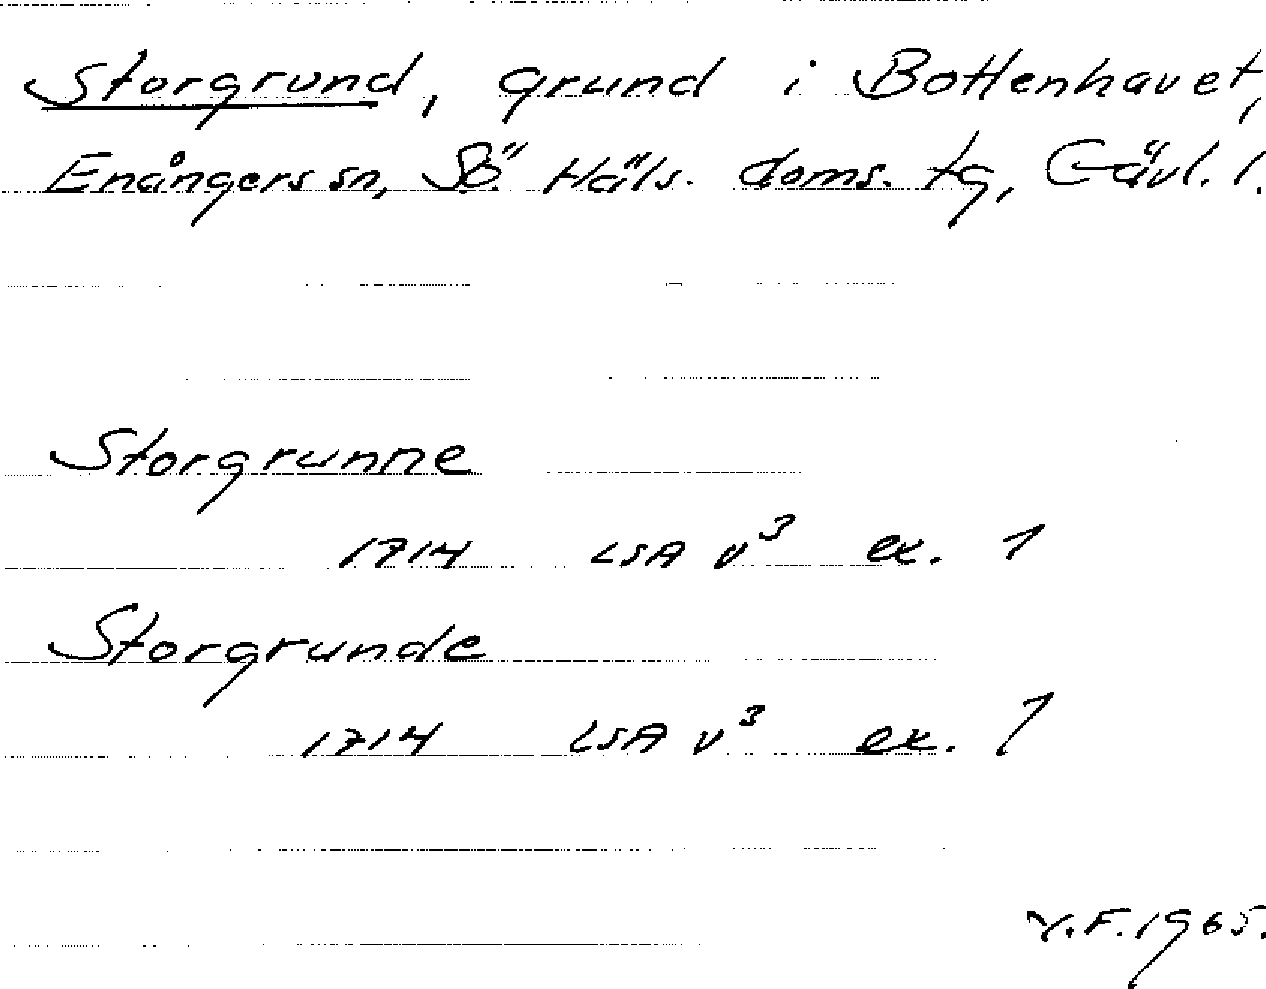 Storgrund, grund i Bottenhavet,
Enångers sn, Sö Häls. doms. tg, Gävl. l.
Storgrunne
1714 LSA v³ ex. 1
Storgrunde
1714 LSA v³ ex. 1
Y.F. 1965.